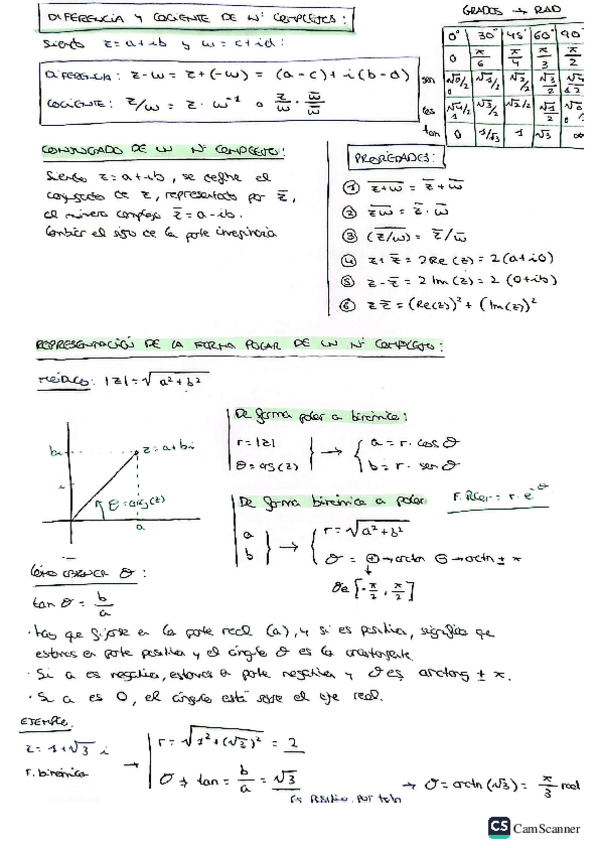 DIFERENCIA Y COCIENTE DE Nº COMPLEJOS:
Siendo z = a+ib y w = c+id:
DIFERENCIA: z-w = z+(-w) = (a-c)+i(b-d)
COCIENTE: z/w = z·w⁻¹ o z/w · w̄/w̄
GRADOS → RAD
0° 30° 45° 60° 90°
0 π/6 π/4 π/3 π/2
sen √0/2 0 √1/2 √2/2 √3/2
cos √4/2 1 √3/2 √2/2 √1/2 √0
tan 0 1/√3 1 √3 ∞
CONJUGADO DE UN Nº COMPLEJO:
Siendo z = a+ib, se define el
conjugado de z, representado por z̄,
el número complejo z̄ = a-ib.
Cambiar el signo de la parte imaginaria
PROPIEDADES:
① z+w = z̄ + w̄
② zw = z̄ · w̄
③ (z/w) = z̄/w̄
④ z+z̄ = 2Re(z) = 2(a+i0)
⑤ z-z̄ = 2Im(z) = 2(0+ib)
⑥ z z̄ = (Re(z))² + (Im(z))²
REPRESENTACIÓN DE LA FORMA POLAR DE UN Nº COMPLEJO:
MÓDULO: |z| = √a²+b²
bi z = a+bi
i
θ = arg(z)
a
De forma polar a binómica:
r = |z| → a = r·cos θ
θ = arg(z) b = r·sen θ
De forma binómica a polar: F. Polar = r·e^iθ
a → r = √a²+b²
b θ = ⊕→arctn ⊖→arctn ± π
De [-π/2, π/2]
Cómo obtener θ:
tan θ = b/a
· Hay que fijarse en la parte real (a), y si es positiva, significa que
estamos en parte positiva y el ángulo θ es la arcotangente.
· Si a es negativa, estamos en parte negativa y θ es arctang ± π.
· Si a es 0, el ángulo está sobre el eje real.
EJEMPLO:
z = 1+√3 i → r = √1²+(√3)² = 2
F. binómica θ → tan = b/a = √3 → θ = arctn(√3) = π/3 rad
Es positivo, por tanto
CS CamScanner